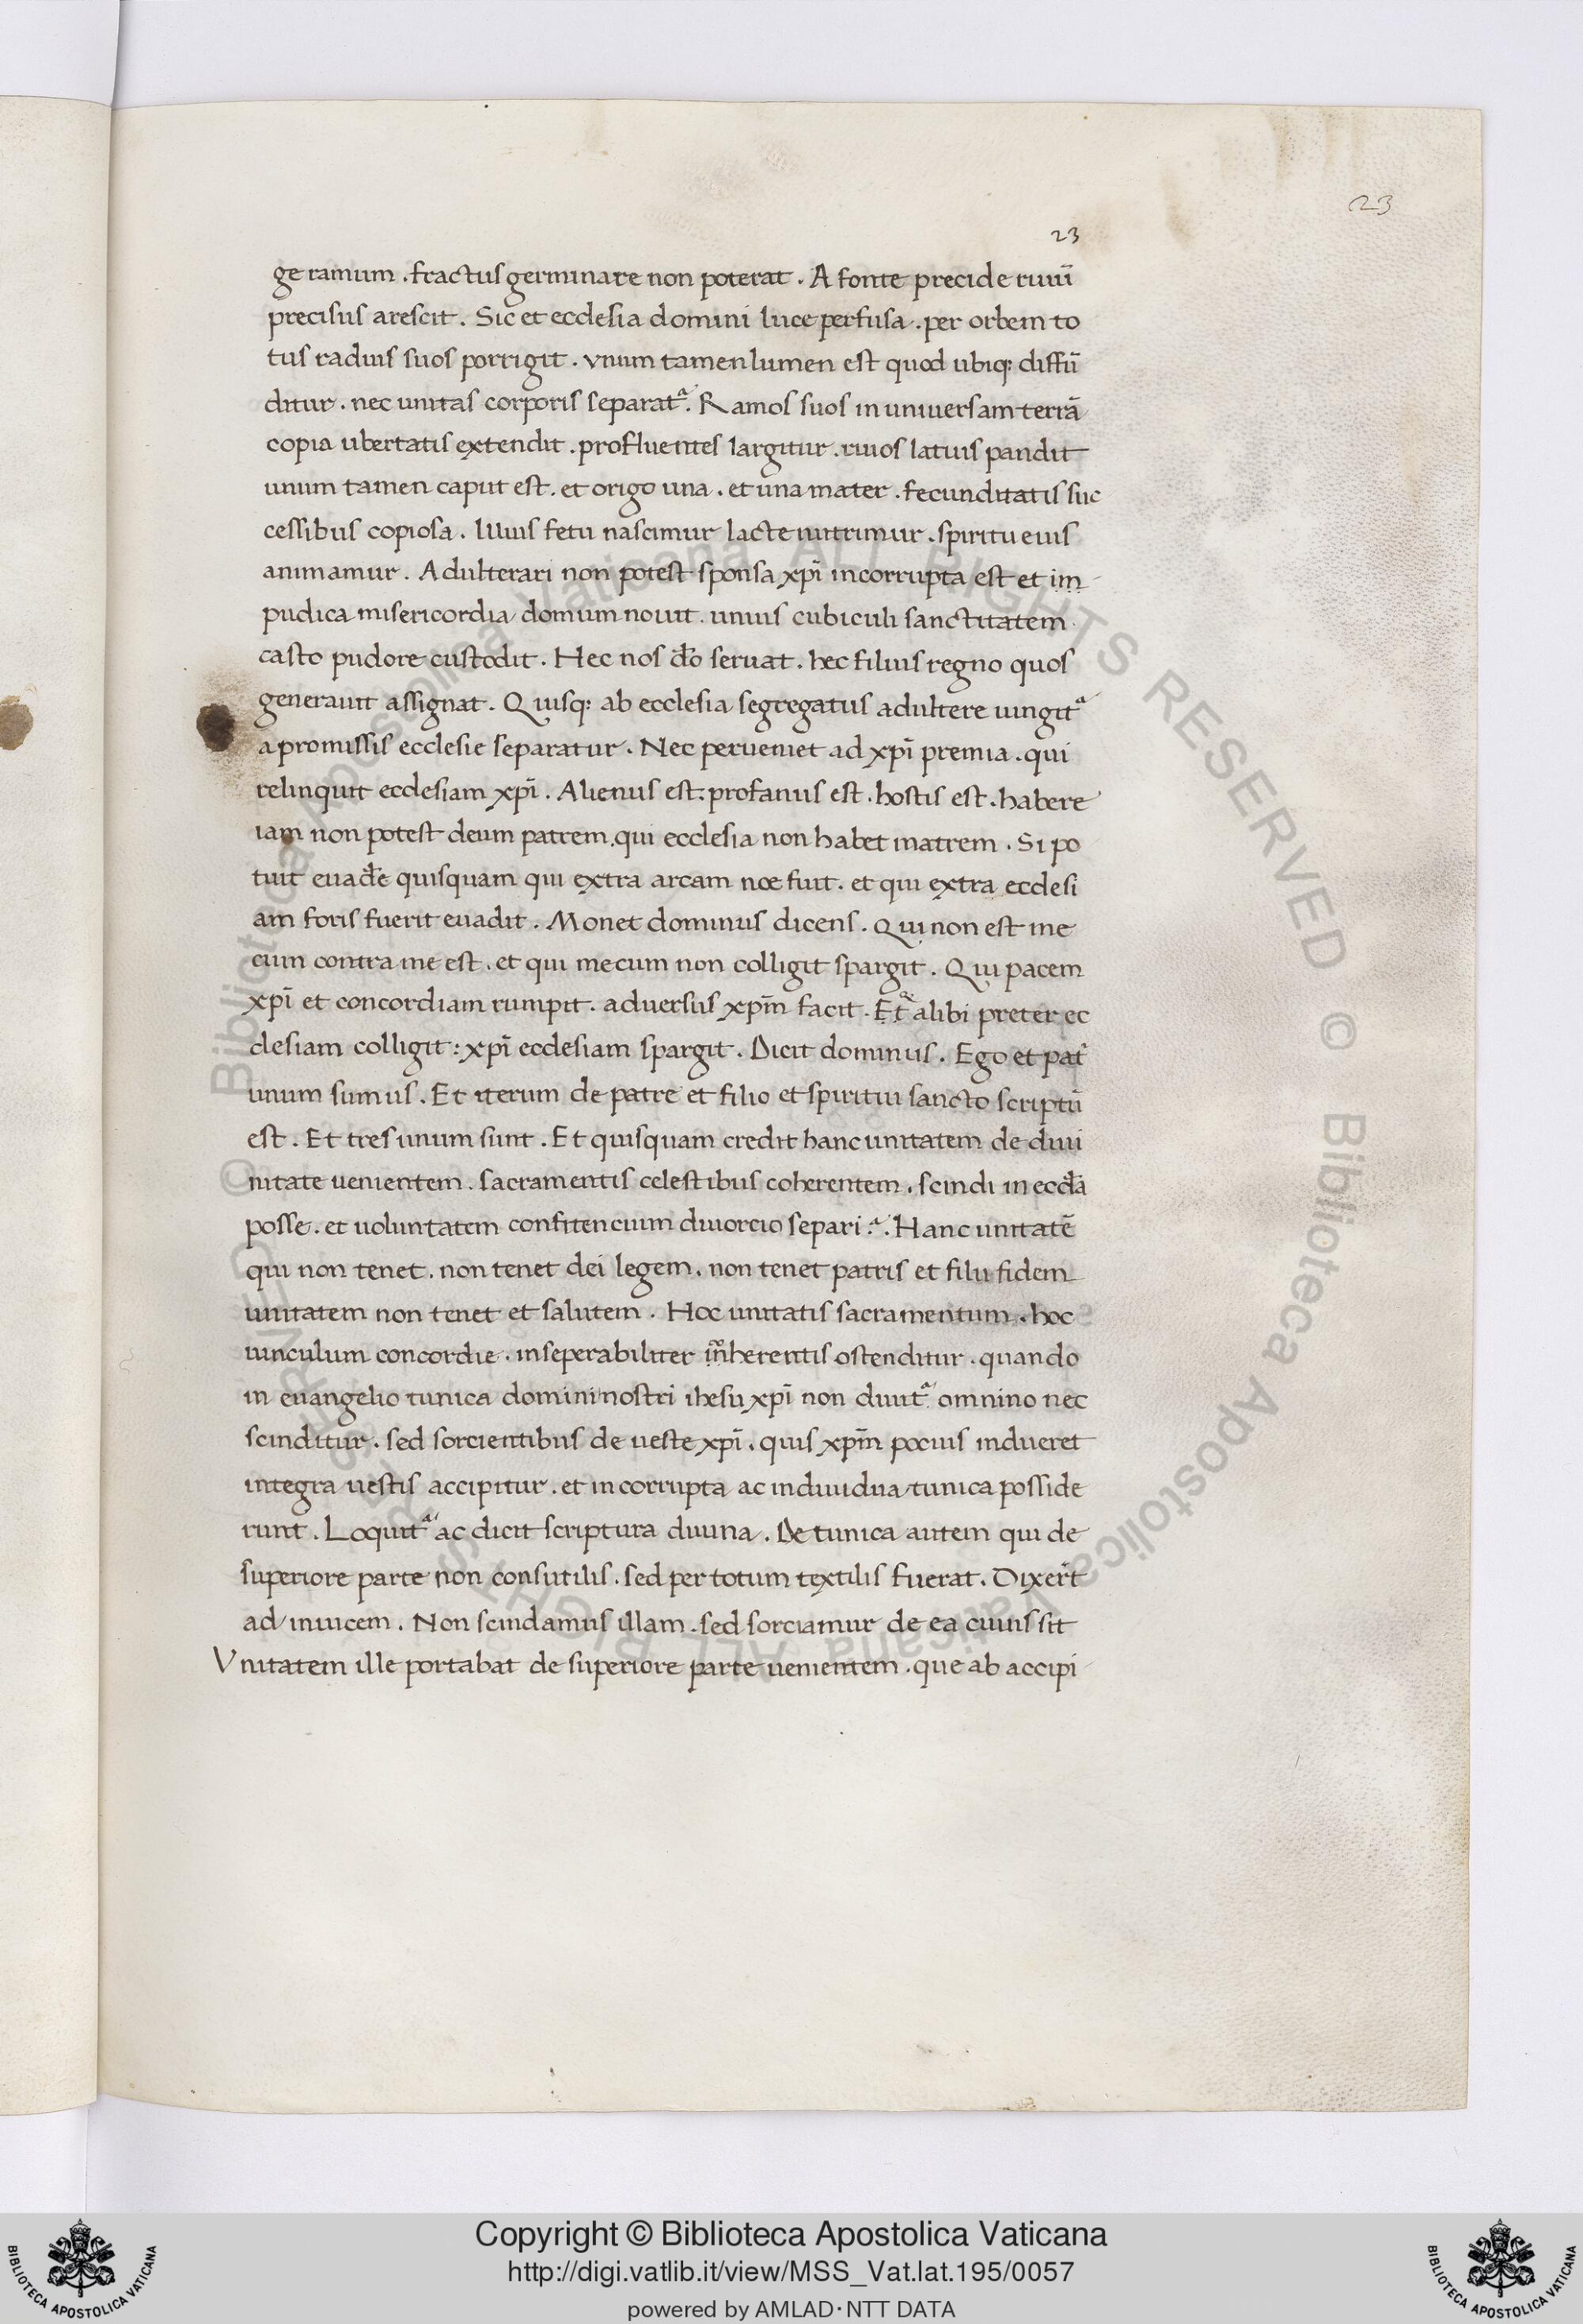 23
23
ge ramum . fractus germinare non poterat . A fonte precide riuū
precisus arescit . Sic et ecclesia domini luce perfusa . per orbem to
tus radius suos porrigit . vnum tamen lumen est quod ubiq; diffū
ditur . nec unitas corporis separatᵃ . Ramos suos in uniuersam terrā
copia ubertatis extendit . profluentes largitur . riuos latius pandit
unum tamen caput est . et origo una . et una mater . fecunditatis suc
cessibus copiosa . Illius fetu nascimur lacte nutrimur . spiritu eius
animamur . Adulterari non potest sponsa xp̄i incorrupta est et im
pudica misericordia domum nouit . unius cubiculi sanctitatem
casto pudore custodit . Hec nos deo seruat . hec filius regno quos
generauit assignat . Quisq; ab ecclesia segregatus adultere iungitᵃ
a promissis ecclesie separatur . Nec perueniet ad xp̄i premia . qui
relinquit ecclesiam xp̄i . Alienus est . profanus est . hostis est . habere
iam non potest deum patrem . qui ecclesia non habet matrem . Si po
tuit euade quisquam qui extra arcam noe fuit . et qui extra ecclesi
am foris fuerit euadit . Monet dominus dicens . Qui non est me
cum contra me est . et qui mecum non colligit spargit . Qui pacem
xp̄i et concordiam rumpit . aduersus xp̄m facit . Et q alibi preter ec
clesiam colligit : xp̄i ecclesiam spargit . Dicit dominus . Ego et pat̄
unum sumus . Et iterum de patre et filio et spiritui sancto scriptū
est . Et tres unum sunt . Et quisquam credit hanc unitatem de diui
nitate uenientem . sacramentis celestibus coherentem . scindi in eccl̄a
posse . et uoluntatem confitencium diuorcio separi . Hanc unitatē
qui non tenet . non tenet dei legem . non tenet patris et filii fidem
unitatem non tenet et salutem . Hoc unitatis sacramentum . hoc
uinculum concordie . inseperabiliter herentis ostenditur . quando
in euangelio tunica domini nostri ihesu xp̄i non diuitᵃ omnino nec
scinditur . sed sorcientibus de ueste xp̄i . quis xp̄m pocius indueret
integra uestis accipitur . et incorrupta ac indiuidua tunica posside
runt . Loquitᵃ ac dicit scriptura diuina . De tunica autem qui de
superiore parte non consutilis . sed per totum textilis fuerat . Dixer̄t
ad inuicem . Non scindamus illam . sed sorciamur de ea cuius sit
Vnitatem ille portabat de superiore parte uenientem . que ab accipi
© Biblioteca Apostolica Vaticana ALL RIGHTS RESERVED
© Biblioteca Apostolica Vaticana ALL RIGHTS RESERVED
Copyright © Biblioteca Apostolica Vaticana
http://digi.vatlib.it/view/MSS_Vat.lat.195/0057
powered by AMLAD·NTT DATA
BIBLIOTECA APOSTOLICA VATICANA
BIBLIOTECA APOSTOLICA VATICANA